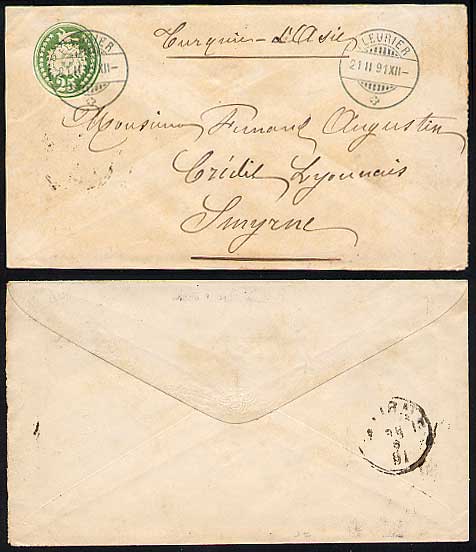 Turquie-d'Asie
FLEURIER
21 II 91 XII–
25
XII–
Monsieur Fernand Augustin
Crédit Lyonnais
Smyrne
91